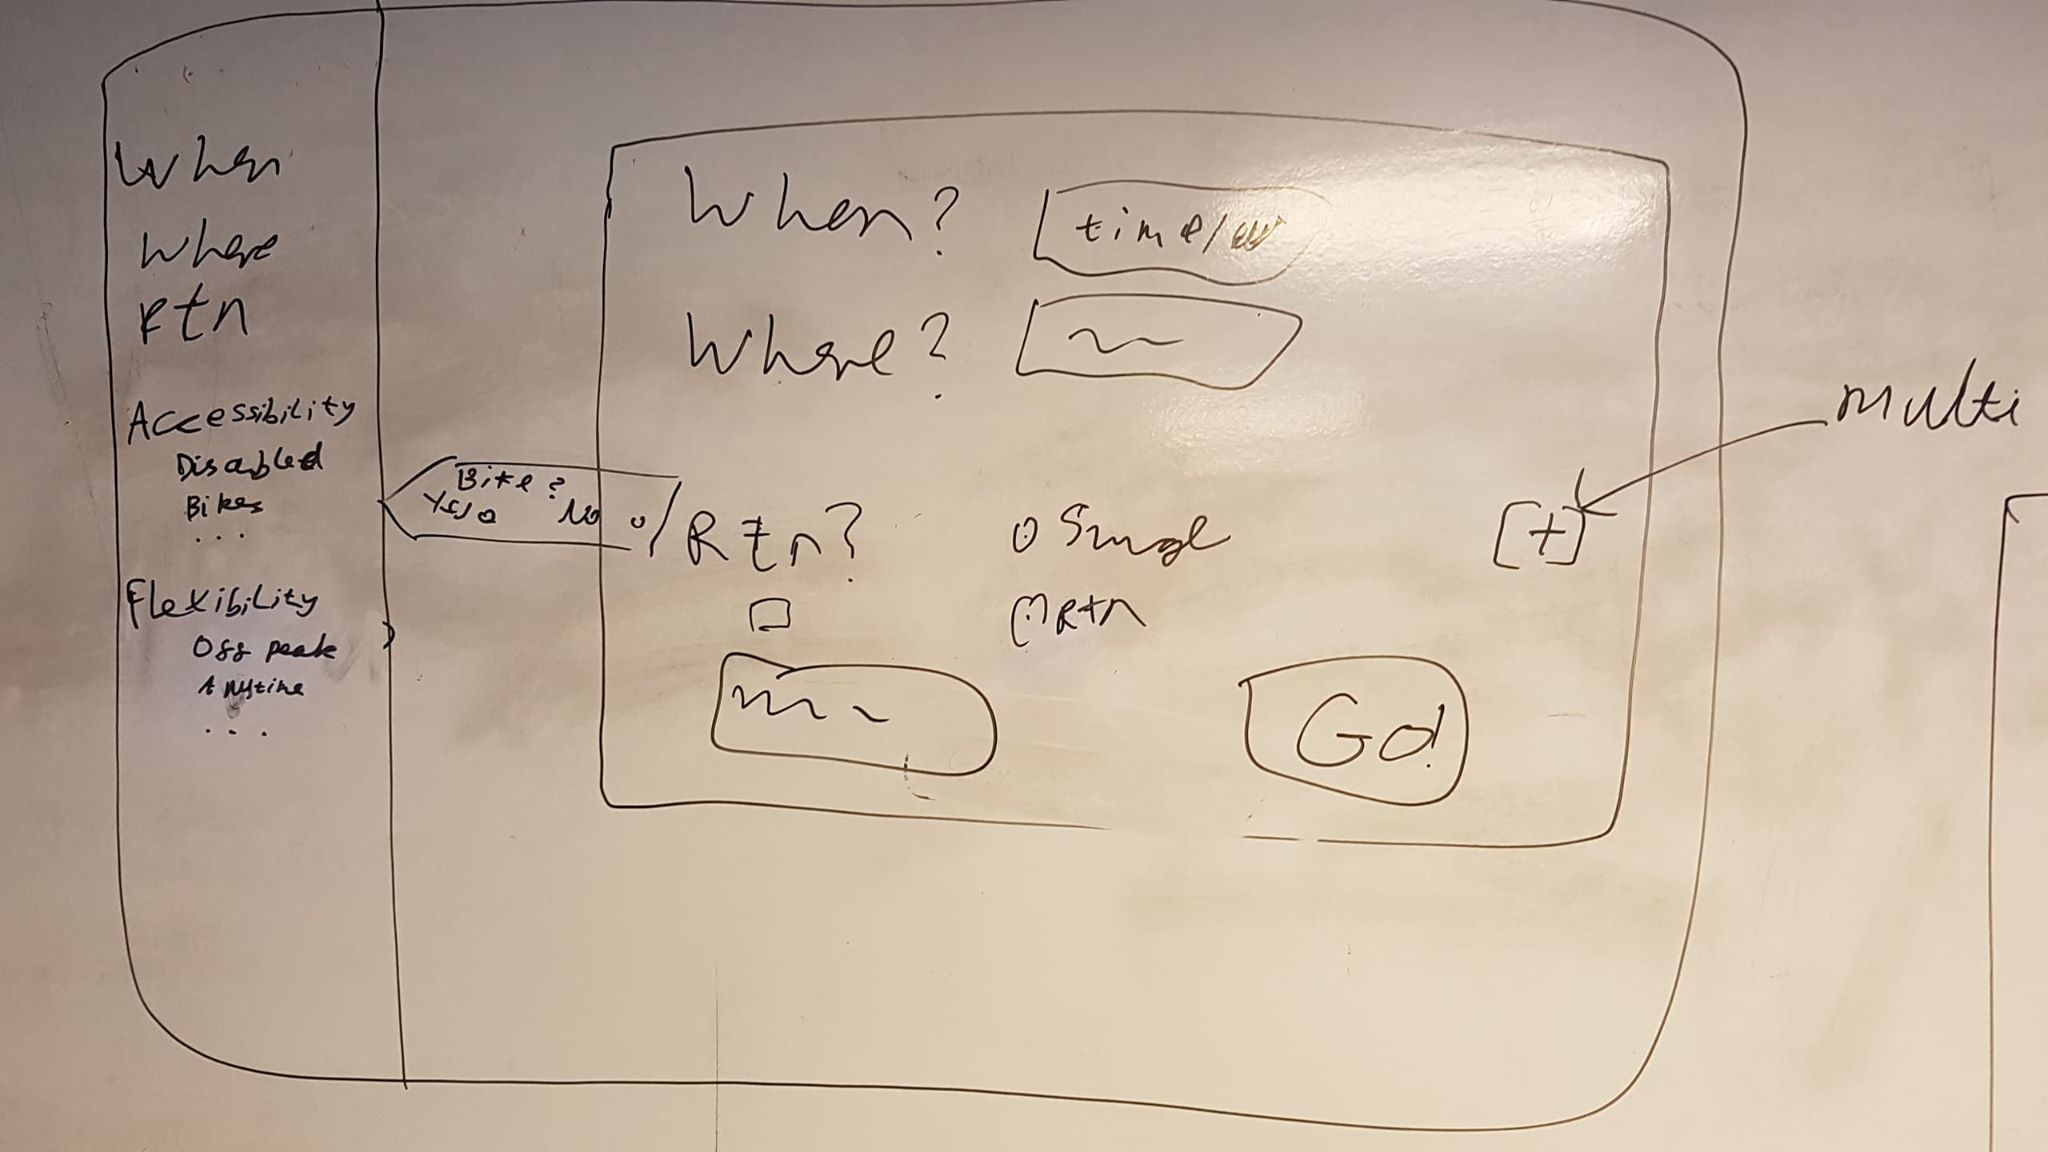 When
Where
Rtn
Accessibility
Disabled
Bikes
...
Flexibility
Off peak
Anytime
...
Bike?
Yes No
When? time/
Where?
Rtn? Single [+]
Rtn
Go!
multi